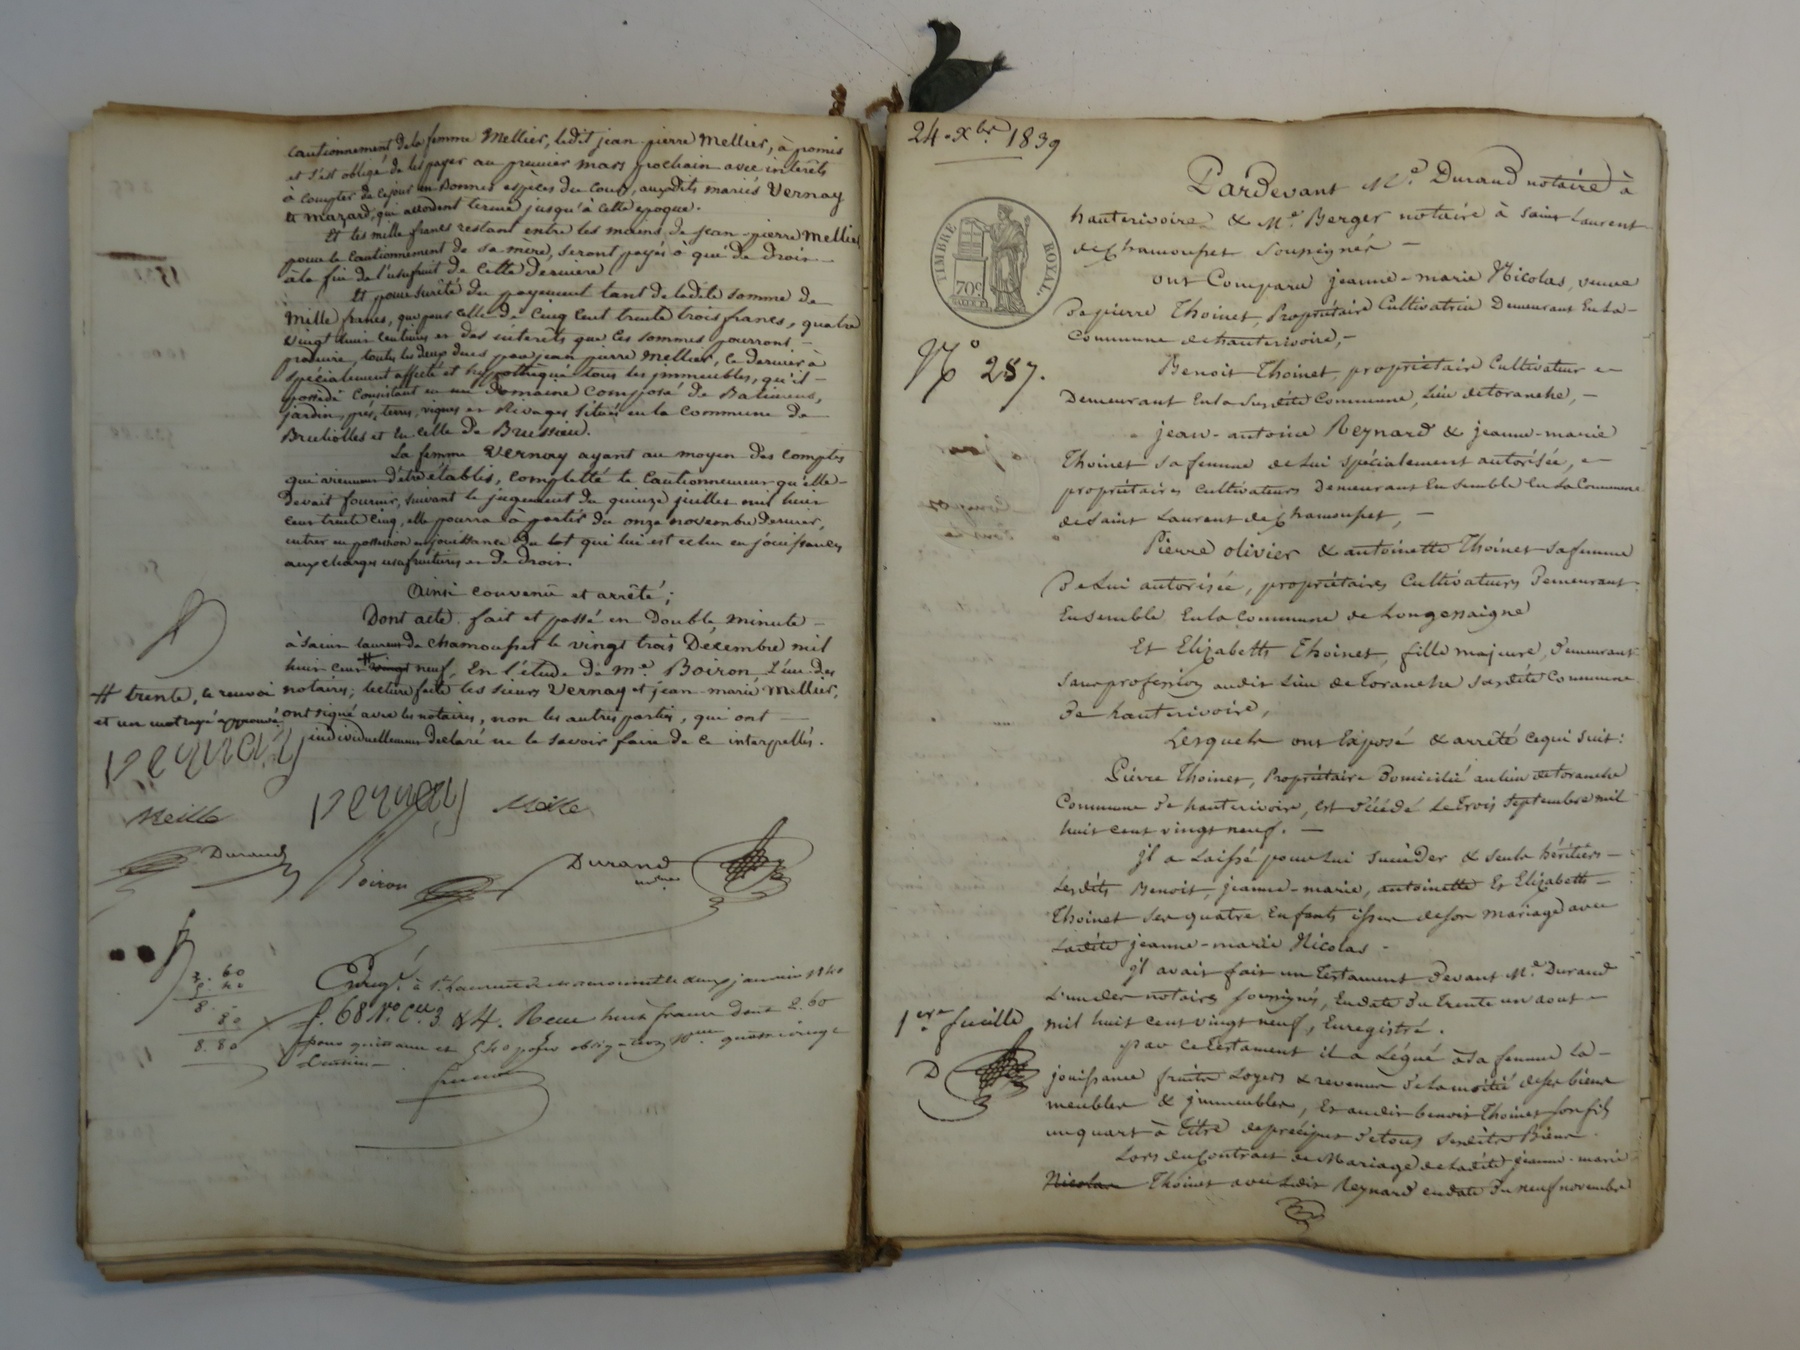 cautionnement de la femme Mellier, ledit jean pierre Mellier, à promis
et s'est obligé de les payer au premier mars prochain avec intérêts
à compter de ce jour en Bonnes espèces du cours, auxdits mariés Vernay
et Mazard, qui accordent terme jusqu'à cette epoque.
Et les mille francs restant entre les mains de jean-pierre Mellier
pour le cautionnement de sa mère, seront payés à qui de droit
à la fin de l'usufruit de cette derniere.
Et pour sureté du payement tant de ladite somme de
Mille francs, que pour celle de Cinq cent trente trois francs, quatre
vingt huit centimes et des intérêts que ces sommes pourront
produire, toutes les deux dues par jean pierre Mellier, ce dernier à
spécialement affecté et hypothéqué tous les immeubles, qu'il
possède consistant en un Domaine composé de Batimens,
jardin, prés, terres, vignes et Rivages situés en la commune de
Brullioles et en celle de Brussieu.
La femme Vernay ayant au moyen des comptes
qui viennent d'être établis, completté le cautionnement qu'elle
devait fournir, suivant le jugement du quinze juillet mil huit
cent trente cinq, elle pourra à partir du onze novembre dernier,
entrer en possession en jouissance du lot qui lui est echu en jouissances
aux charges usufruitieres et de droit.
Ainsi convenu et arrêté;
Dont acte. fait et passé en Double, minute
à Saint laurent de chamousset le vingt trois Décembre mil
huit cent # vingt neuf, En l'étude de me. Boiron l'un des
# trente, le renvoi notaires; lecture faite les sieurs Vernay et jean-marie Mellier,
et un mot rayé approuvé ont signé avec les notaires, non les autres parties, qui ont
individuellement declaré ne le savoir faire de ce interpellés.
vernay
vernay
Durand
Boiron
Durand
3. 60
5. 40
8.
80
8. 80
Enreg.t à St Laurent de chamousset le deux janvier 1840
f. 68 Ro. Ces 3 & 4. Recu huit francs dont 2.60
pour quittance et 5.40 pour oblig.on 10me quatre vingt
centimes
24. Xbre. 1839
Pardevant Me. Durand notaire à
hauterivoire & Me. Berger notaire à Saint Laurent
de Chamousset Soussignés
TIMBRE ROYAL.
70c
ont Comparu jeanne-marie Nicolas, veuve
de pierre Thoinet, Propriétaire Cultivatrice Demeurant En la
Commune de hauterivoire,
No 287.
Benoit Thoinet, propriétaire Cultivateur
Demeurant En la Susdite Commune, Lieu de toranche,
jean-antoine Reynard & jeanne-marie
Thoinet sa femme de Lui spécialement autorisée,
propriétaires Cultivateurs Demeurant Ensemble En La Commune
de Saint Laurent de Chamousset,
Pierre olivier & antoinette Thoinet sa femme
de Lui autorisée, propriétaires Cultivateurs Demeurant
Ensemble En la Commune de Longessaigne
Et Elizabeth Thoinet, fille majeure, demeurant
sans profession audit Lieu de Toranche susdite Commune
de hauterivoire,
Lesquels ont Exposé & arrêté ce qui suit:
Pierre Thoinet, Propriétaire Domicilié au lieu de toranche
Commune de hauterivoire, est décédé Le Trois septembre mil
huit cent vingt neuf.
il a Laissé pour Lui succéder & seuls héritiers
Lesdits Benoit, jeanne-marie, antoinette Et Elizabeth
Thoinet ses quatre Enfants issus de son mariage avec
Ladite jeanne-marie Nicolas.
il avait fait un Testament devant Me. Durand
L'un des notaires soussignés, En date du trente un aout
1ere. feuille mil huit cent vingt neuf, Enregistré.
par ce Testament il a Légué à sa femme la
D jouissance fruits Loyers & revenus de la moitié de ses biens
meubles & immeubles, Et audit benoit Thoinet son fils
un quart à titre de préciput de tous sesdits Biens.
Lors du Contrat de Mariage de Ladite jeanne-marie
Nicolas Thoinet avec Ledit Reynard en date du neuf novembre